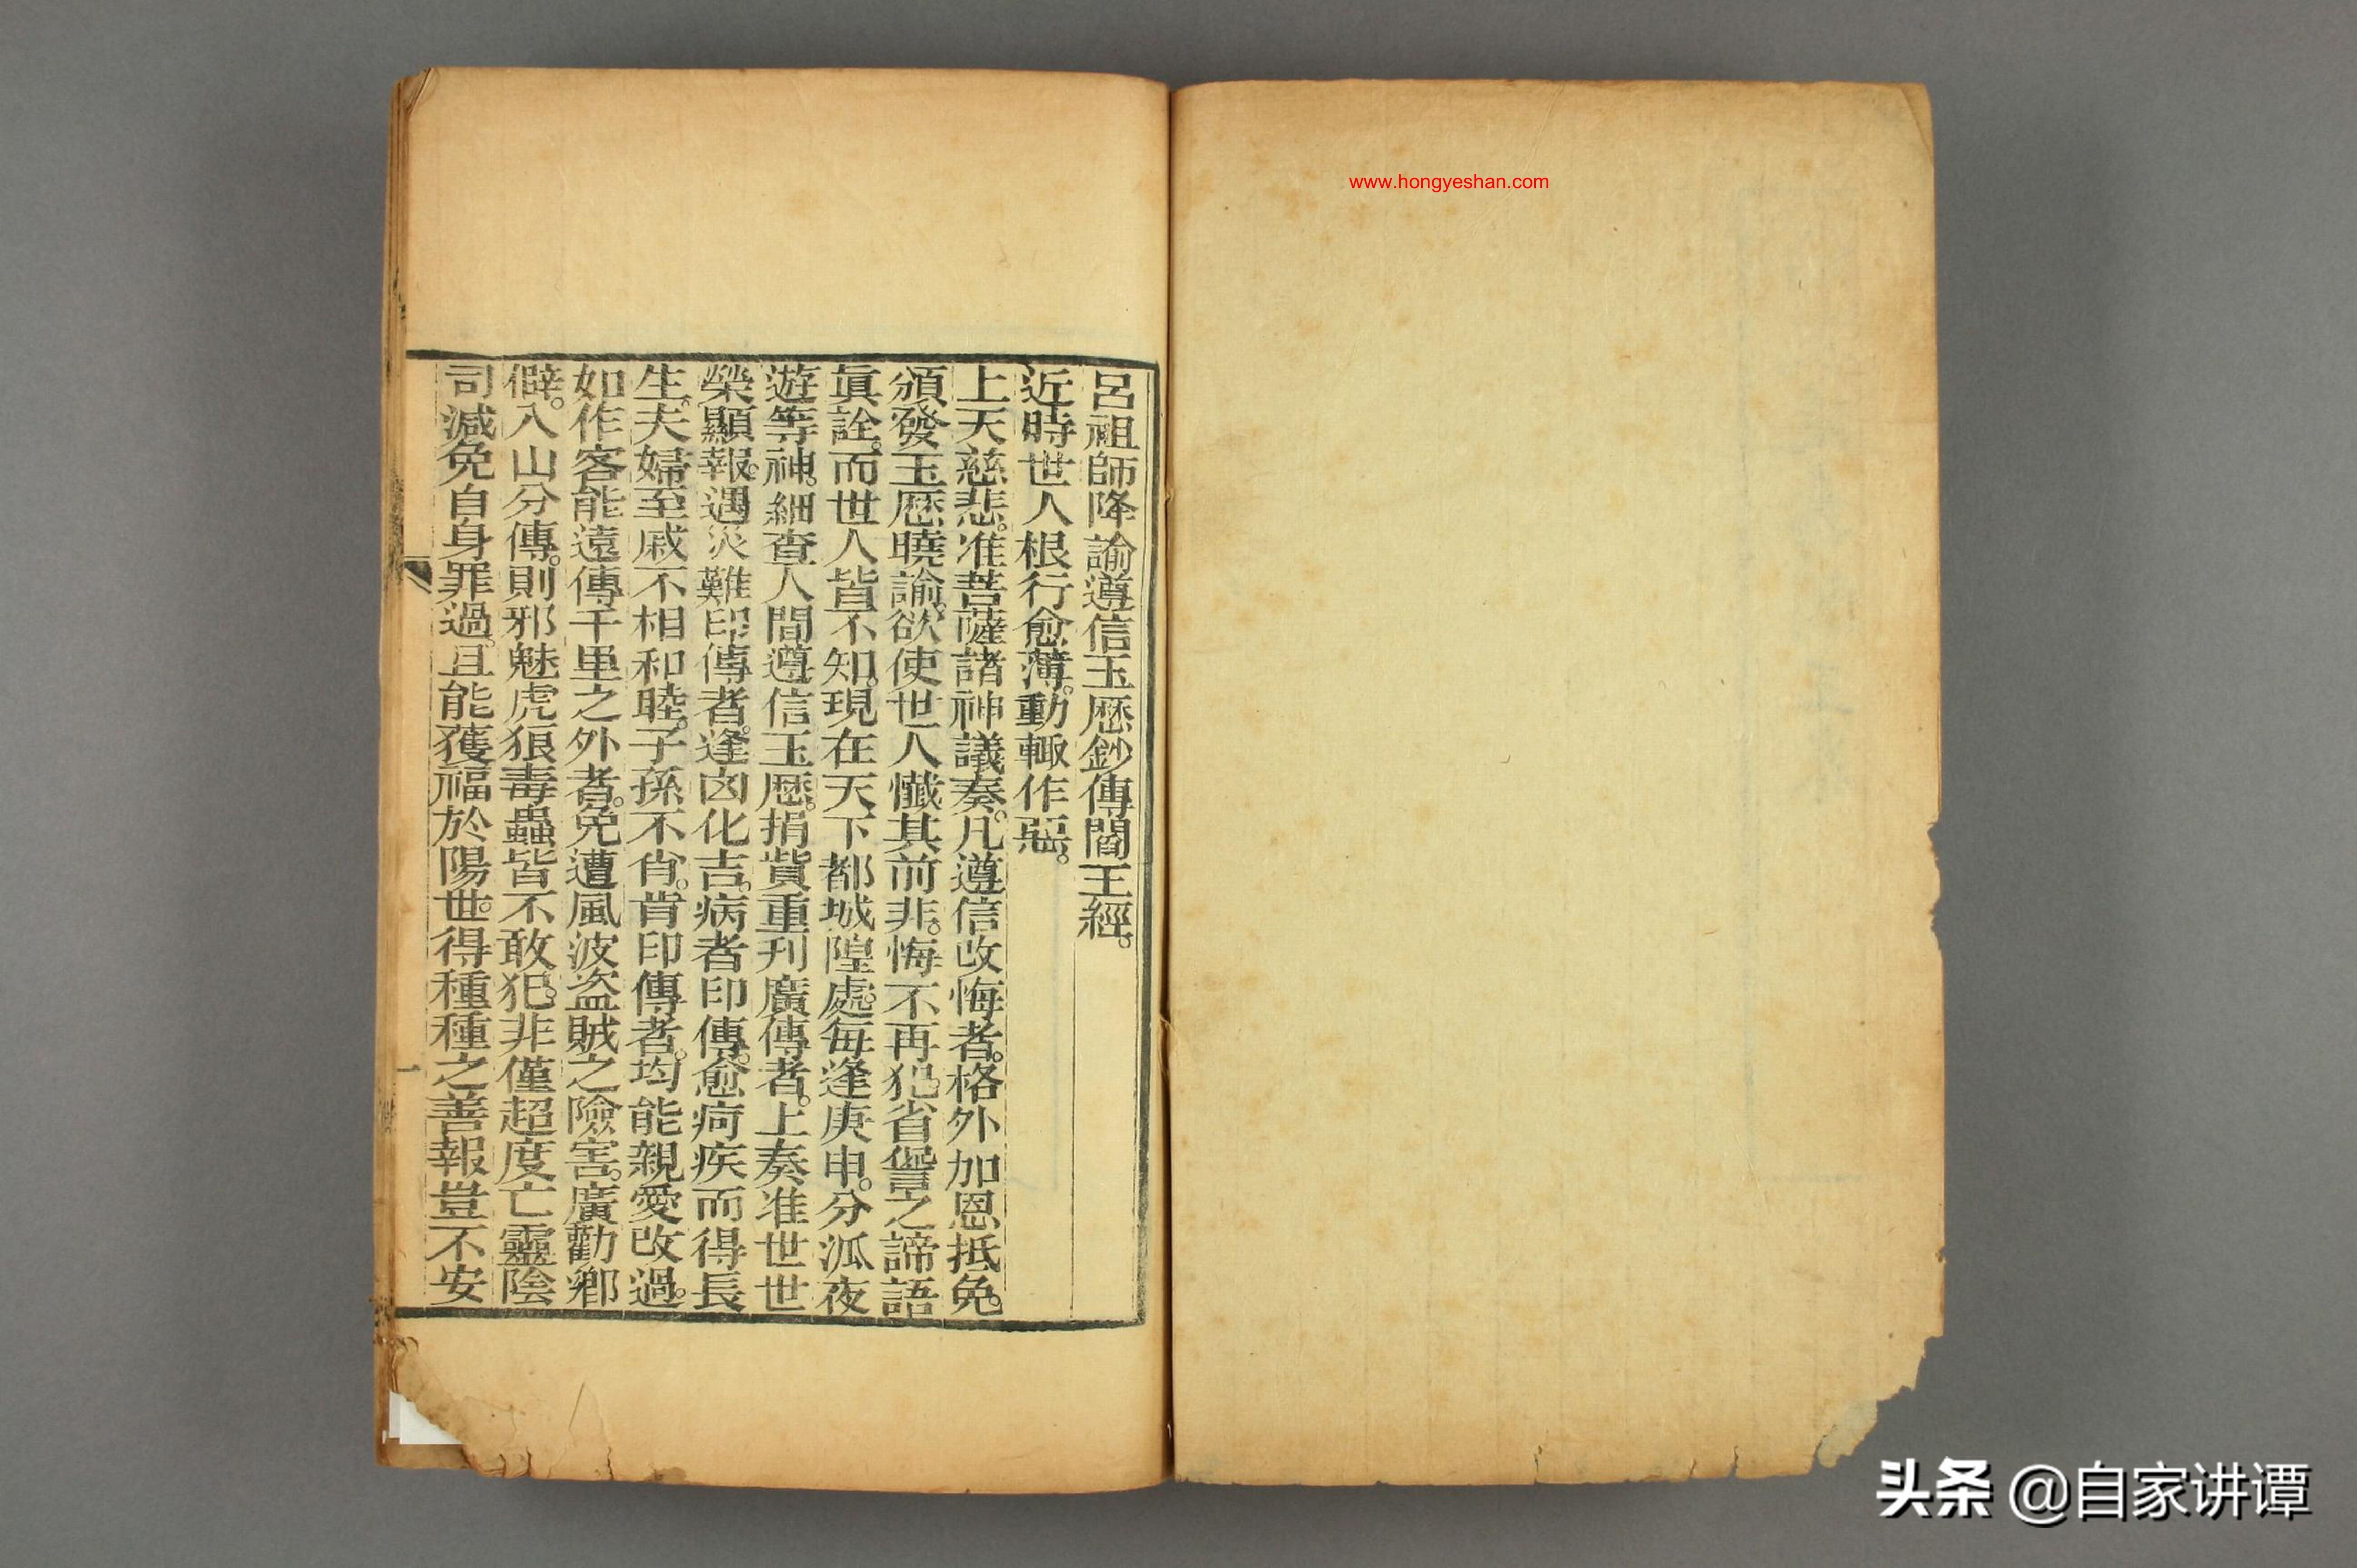 www.hongyeshan.com
呂祖師降諭遵信玉歷鈔傳閻王經。
近時世人根行愈薄。動輙作惡。
上天慈悲。准菩薩諸神議奏。凡遵信改悔者。格外加恩抵免。
頒發玉歷曉諭。欲使世人懺其前非。悔不再犯。省督之諦語
眞詮。而世人皆不知。現在天下都城隍處。每逢庚申。分派夜
遊等神。細查人間遵信玉歷。捐貲重刋廣傳者。上奏准世世
榮顯報。遇災難印傳者。逢凶化吉。病者印傳。愈疴疾而得長
生。夫婦至戚不相和睦。子孫不肖。肯印傳者。均能親愛改過。
如作客能遠傳千里之外者。免遭風波盗賊之險害。廣勸鄉
僻。入山分傳。則邪魅虎狼毒蟲皆不敢犯。非僅超度亡靈陰
司減免自身罪過。且能獲福於陽世。得種種之善報豈不安
一
头条 @自家讲谭